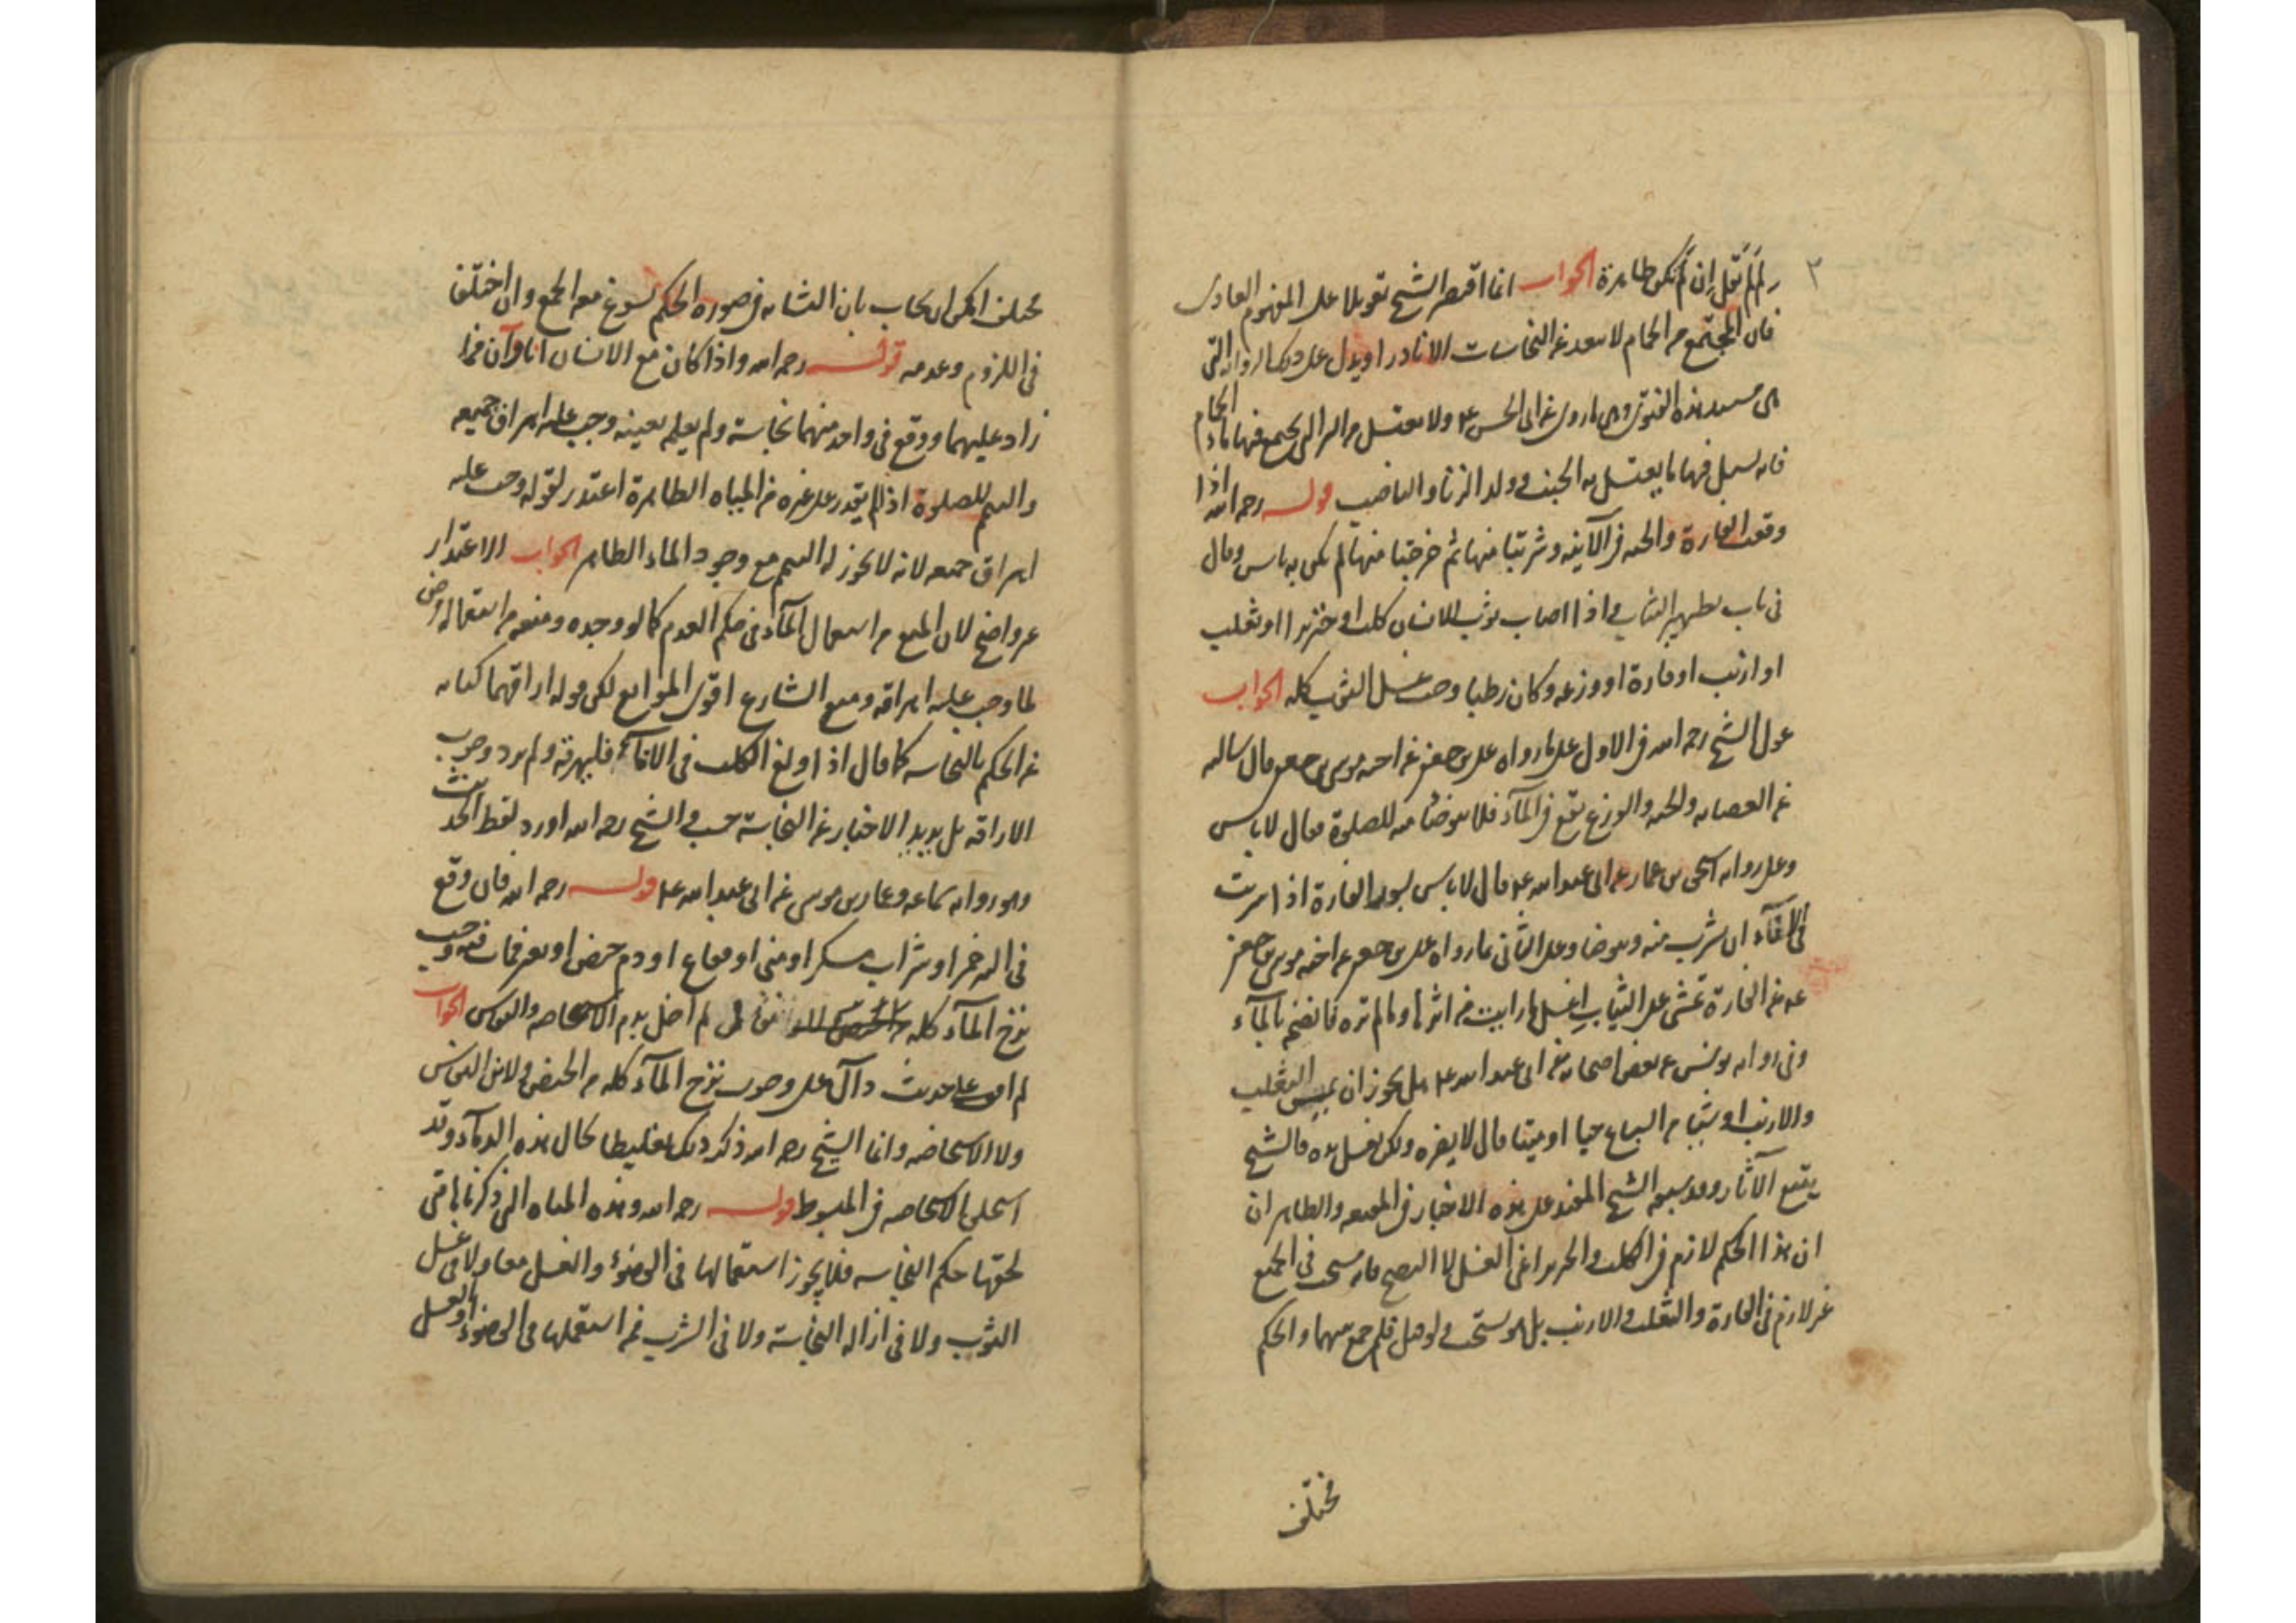 ٣
ولم لم تقل إن لم تكن طاهرة الجواب انما اقتصر الشيخ تعويلا على المفهوم العادى
فان المجتمع من الحمام لا سعد عن النجاسات الا نادرا ويدل على ذلك الرواية التى
هى مستند هذه الفتوى وهى ما روى عن ابى الحسن ع ولا تغتسل من البئر التى يجتمع فيها ماء الحمام
فانه يسيل فيها ما يغتسل به الجنب وولد الزنا والناصب قوله رحمه الله اذا
وقعت الفارة والحية فى الآنية وشربتا منها ثم خرجتا منها لم يكن به باس وقال
فى باب تطهير الثياب واذا اصاب ثوب الانسان كلب او خنزير او ثعلب
او ارنب او فارة او وزغة وكان رطبا وجب غسل الثوب كله الجواب
عول الشيخ رحمه الله فى الاول على ما رواه على بن جعفر عن اخيه موسى بن جعفر قال سالته
عن العصاية والحية والوزغ يقع فى المآء فلا يتوضا منه للصلوة فقال لا باس
وعلى رواية اسحق بن عمار عن ابى عبد الله ع قال لا باس بسور الفارة اذا شربت
فى الانآء ان يشرب منه ويتوضا وعلى الثانى بما رواه على بن جعفر عن اخيه موسى بن جعفر
ع عن الفارة تمشى على الثياب اغسل ما رايت من اثرها وما لم تره فانضحه بالمآء
وفى رواية يونس عن بعض اصحابه عن ابى عبد الله ع هل يجوز ان يمس الثعلب
والارنب او شيئا من السباع حيا او ميتا قال لا يضره ولكن يغسل يده فالشيخ
يتبع الآثار وقد سبقه الشيخ المفيد على هذه الاخبار فى المقنعة والظاهر ان
ان هذا الحكم لازم فى الكلب والخنزير اعنى الغسل لا النضح فانه مستحب فى الجميع
غير لازم فى الفارة والثعلب والارنب بل هو مستحب ولو قيل فلم جمع بينهما والحكم
مختلف
مختلف امكن ان يجاب بان التشابه فى صورة الحكم يسوغ معه الجمع وان اختلف
فى اللزوم وعدمه قوله رحمه الله واذا كان مع الانسان اناوآن فما
زاد عليهما ووقع فى واحد منهما نجاسة ولم يعلم بعينه وجب عليه اهراق جميعه
والتيمم للصلوة اذا لم يقدر على غيره من المياه الطاهرة اعتذر لقوله وجب عليه
اهراق جميعه لانه لا يجوز له التيمم مع وجود الماء الطاهر الجواب الاعتذار
غير واضح لان المنع من استعمال المآء فى حكم العدم كما لو وجده ومنع من استعماله مرض
لما وجب عليه اهراقه ومنع الشارع اقوى الموانع لكن قوله اراقهما كناية
عن الحكم بالنجاسة كما قال اذا ولغ الكلب فى الانآء فليهرقه ولم يرد وجوب
الاراقة بل يريد الاخبار عن النجاسة حسب والشيخ رحمه الله اورد لفظ الحديث
وهو رواية سماعة وعمار بن موسى عن ابى عبد الله ع قوله رحمه الله فان وقع
فى البئر خمر او شراب مسكر او منى او فقاع او دم حيض او بعير فمات فيه وجب
نزح المآء كله لم اخل بدم الاستحاضة والنفاس الجواب
لم اقف على حديث دآل على وجوب نزح المآء كله من الحيض ولا من النفاس
ولا الاستحاضة وانما الشيخ رحمه الله ذكر ذلك تغليظا لحال هذه الدمآء وقد
الاستحاضة فى المبسوط قوله رحمه الله وهذه المياه التى ذكرناها متى
لحقها حكم النجاسة فلا يجوز استعمالها فى الوضوء والغسل معا ولا فى غسل
الثوب ولا فى ازالة النجاسة ولا فى الشرب فمن استعملها فى الوضوء او الغسل